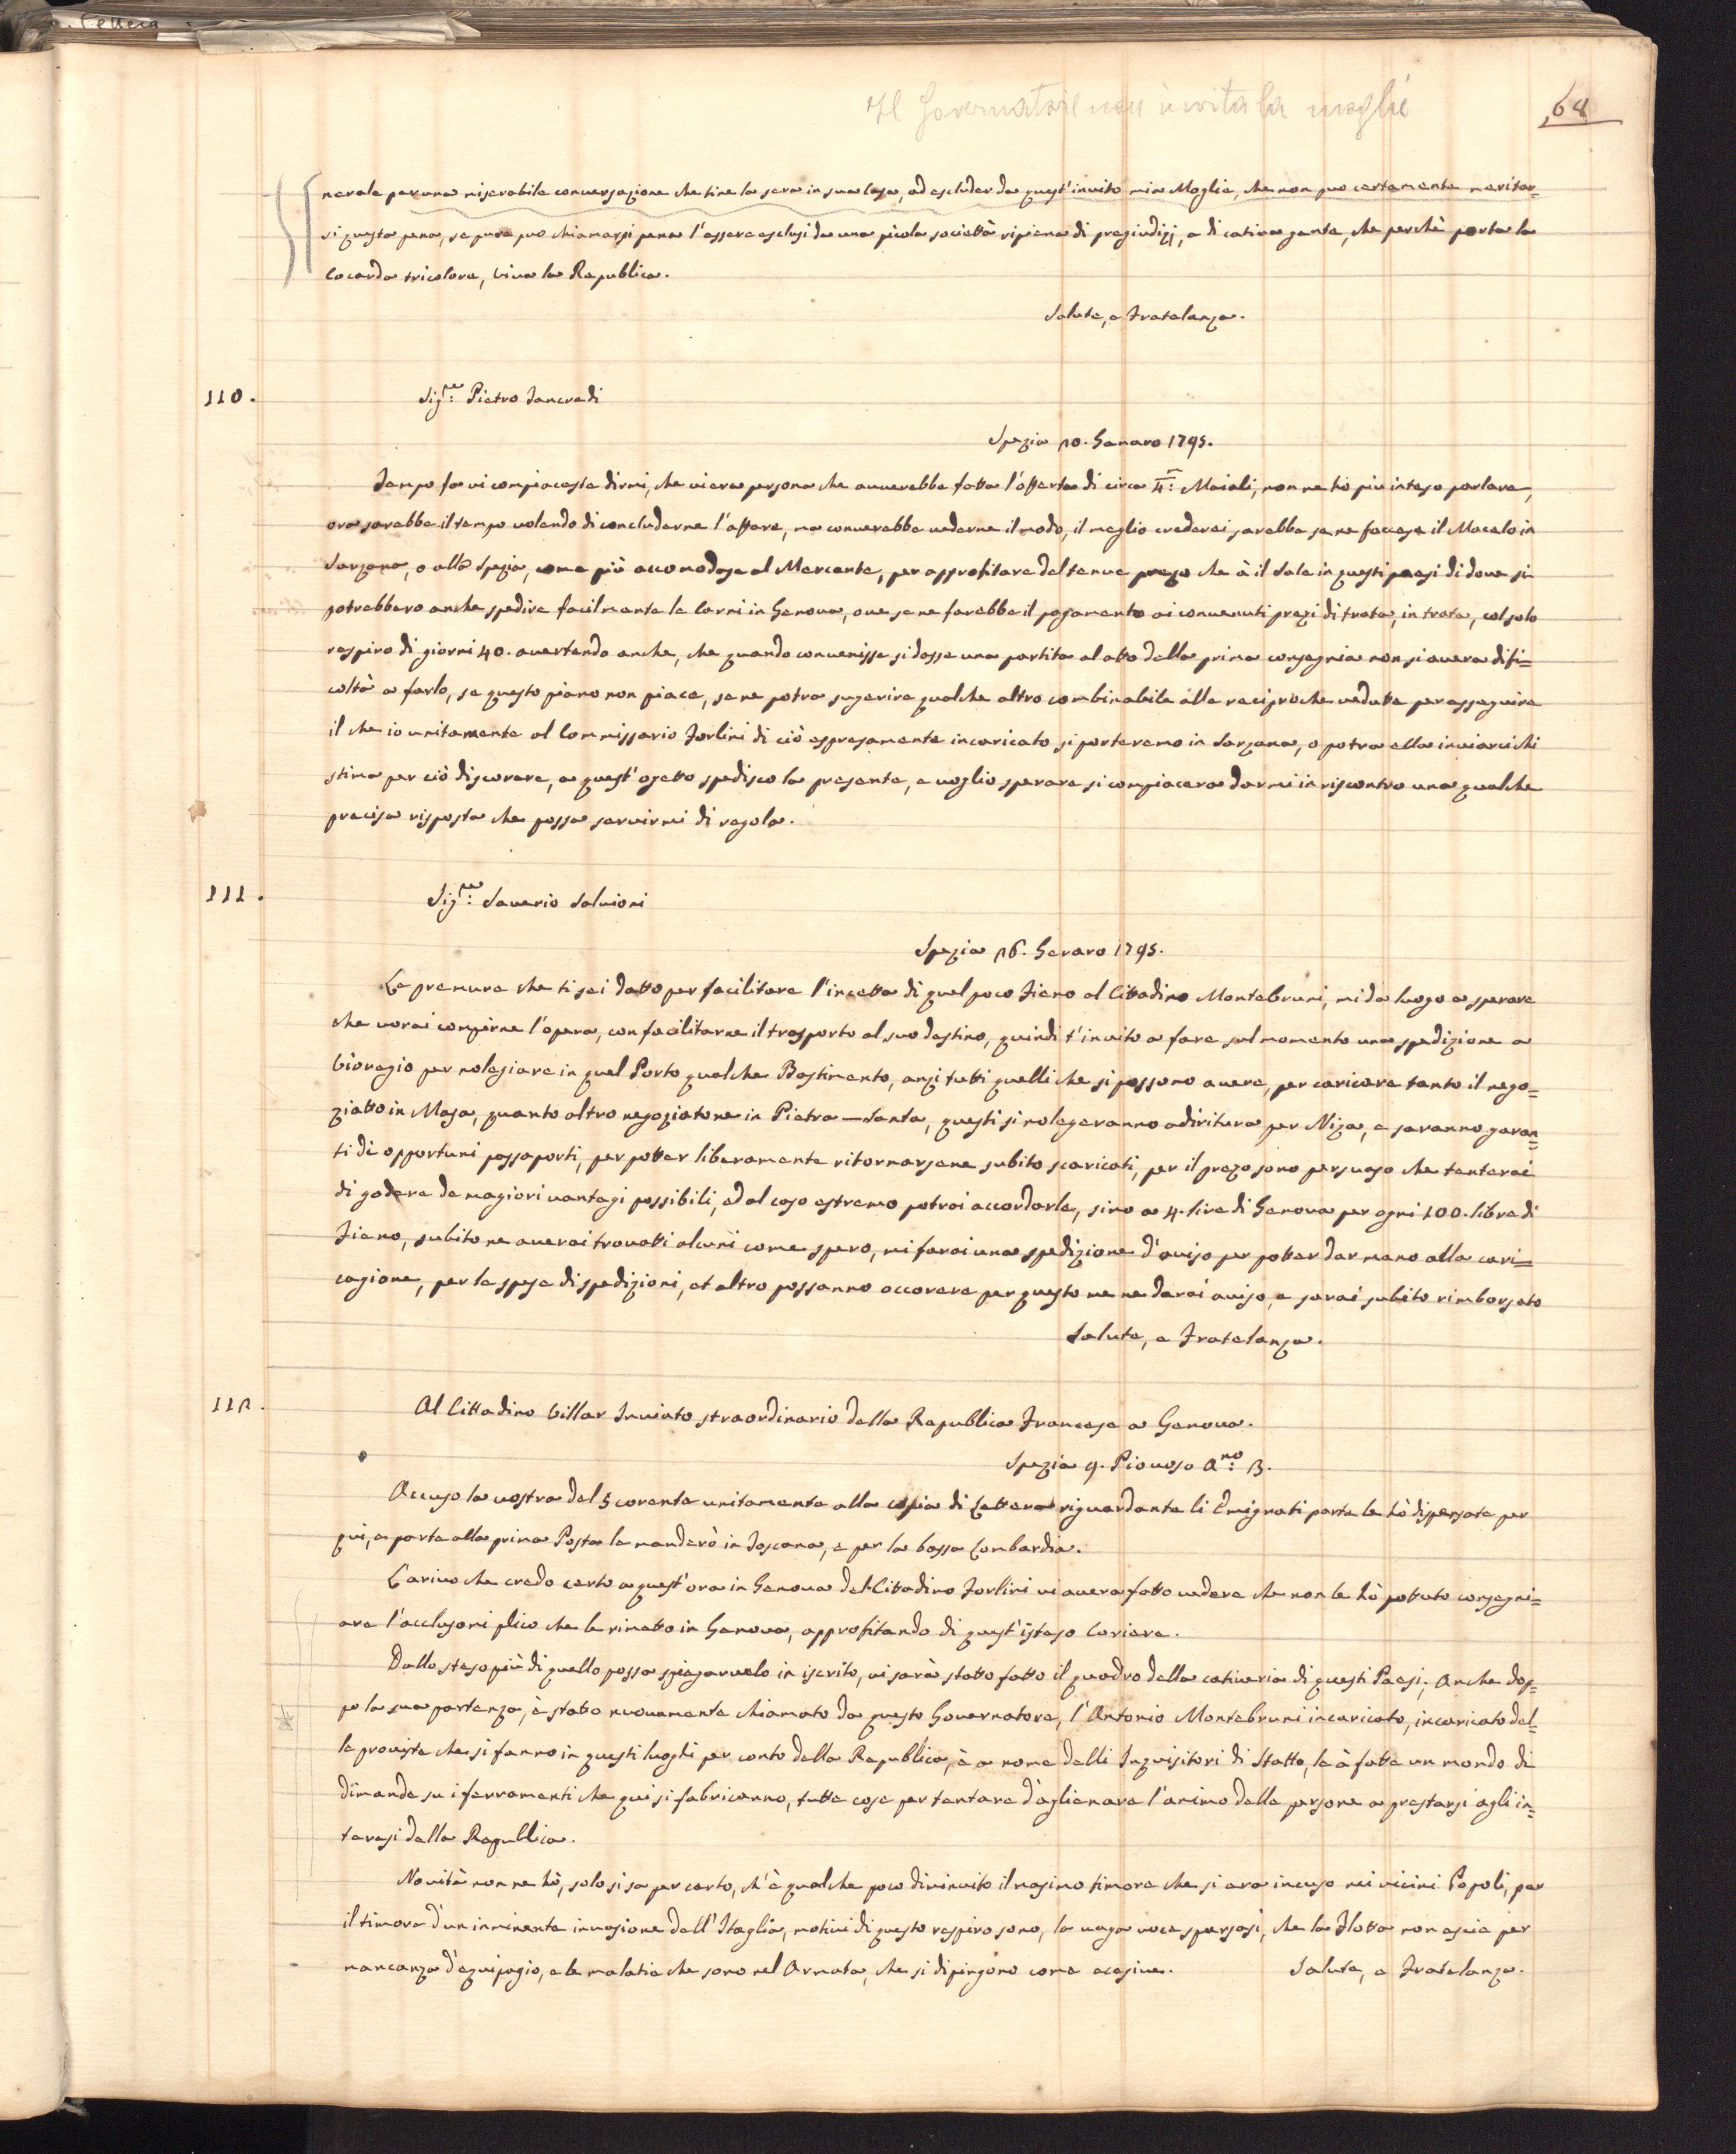 Il Governatore non invita la moglie
64
nerale per una miserabile conversazione che tine la sera in sua Casa, ad escluder da quest'invito mia Moglie, che non puo certamente meritar=
si questa pena, se pure puo chiamarsi pena l'essere esclusi da una picola societtà ripiena di pregiudizj, e di cativa gente, che perchè porta la
Cocarda tricolore, viva la Republica.
Salute, e Fratelanza.
110. Sig.re Pietro Tancredi
Spezia 20. Genaro 1795.
Tempo fa vi compiaceste dirmi, che vi era persona che avverebbe fatta l'offerta di circa Maiali, non ne hò più inteso parlare,
ora sarebbe il tempo volendo di concluderne l'affare, ma converebbe vederne il modo, il meglio crederei sarebbe se ne facesse il Macelo in
Sarzana, o alla Spezia, come più accomodasse al Mercante, per approfitare del tenue prezo che à il Sale in questi paesi di dove si
potrebbero anche spedire facilmente le Carni in Genova, ove se ne farebbe il pagamento ai convenuti prezi di trata, in trata, col solo
respiro di giorni 40. avertendo anche, che quando convenisse si dasse una partita al atto della prima consegnia non si avera difi=
coltà a farlo, se questo piano non piace, se ne potra sugerire qualche altro combinabile alle reciproche vedute per asseguire
il che io unitamente al Commissario Forlini di ciò espresamente incaricato si porteremo in Sarzana, o potra ella inviarci chi
stima per ciò discorere, a quest'ogetto spedisco la presente, e voglio sperare si compiacera darmi in riscontro una qualche
precisa risposta che possa servirmi di regola.
111. Sig.re Saverio Salvioni
Spezia 26. Genaro 1795.
Le premure che ti sei datto per facilitare l'incetta di quel poco Fieno al Cittadino Montebruni, mi da luogo a sperare
che vorai compirne l'opera, con facilitarne il trasporto al suo destino, quindi t'invito a fare sul momento una spedizione a
Vioregio per nolegiare in quel Porto qualche Bastimento, anzi tutti quelli che si possono avere, per caricare tanto il nego=
ziatto in Masa, quanto altro negoziatone in Pietra-Santa, questi si nolegeranno adiritura per Niza, e saranno garan=
ti di opportuni passaporti, per potter liberamente ritornarsene subito scaricati, per il prezo sono persuaso che tenterai
di godere de magiori vantagi possibili, ed al caso estremo potrai accordarle, sino a 4. lire di Genova per ogni 100. libre di
Fieno, subito ne averai trovatti alcuni come spero, mi farai una spedizione d'aviso per potter dar mano alla cari=
cagione, per le spese di spedizioni, et altro possanno occorere per questo me ne darai aviso, e sarai subito rimborsato
Salute, e Fratelanza.
112. Al Cittadino Villar Inviato straordinario della Republica Francese a Genova.
Spezia 9. Piovoso A.no 3.
Accuso la vostra del 5 corente unitamente alla copia di Lettera riguardante li Emigrati parte le hò dispensate per
qui, e parte alla prima Posta le manderò in Toscana, e per la bassa Lombardia.
L'arivo che credo certo a quest'ora in Genova del Cittadino Forlini vi avera fatto vedere che non le hò pottuto consegni=
are l'acclusomi plico che le rimetto in Genova, approfitando di quest'isteso Coriere.
Dallo steso più di quello possa spiegarvelo in iscrito, vi sarà statto fatto il quadro della cativeria di questi Paesi; Anche dop=
po la sua partenza, è statto nuovamente chiamato da questo Governatore, l'Antonio Montebruni incaricato, incaricato del=
le proviste che si fanno in questi luoghi per conto della Republica, è a nome delli Inquisitori di Statto, le à fatte un mondo di
dimande su i ferramenti che qui si fabricanno, tutte cose per tentare d'aglienare l'animo delle persone a prestarsi agli in=
teresi della Republica.
Novità non ne hò, solo si sa per certo, ch'è qualche poco diminuito il masimo timore che si era incuso nei vicini Popoli, per
il timore d'un imminente invasione dell'Itaglia, motivi di questo respiro sono, la vaga voce sparsasi, che la Flotta non escie per
mancanza d'equipagio, e le malatie che sono nel Armata, che si dipingono come ecesive. Salute, e Fratelanza.